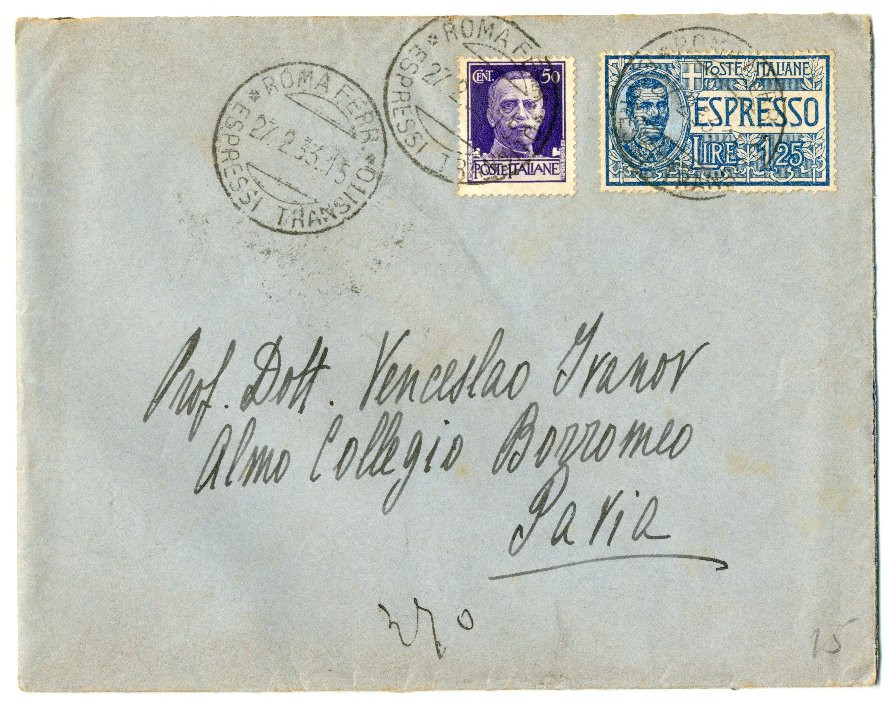 * ROMA FERR. *
27.2.33.13
ESPRESSI TRANSITO
* ROMA FERR
27 2
ESPRESSI
CENT. 50
POSTE ITALIANE
POSTE ITALIANE
ESPRESSO
LIRE 1,25
Prof. Dott. Venceslao Ivanov
Almo Collegio Borromeo
Pavia
15